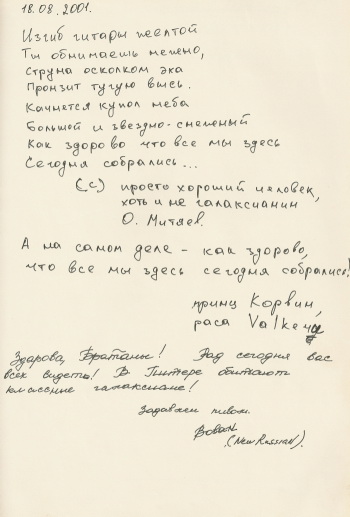 18.08.2001.
Изгиб гитары желтой
Ты обнимаешь нежно,
Струна осколком эха
Пронзит тугую высь.
Качнется купол неба
Большой и звездно-снежный
Как здорово что все мы здесь
Сегодня собрались...
(с) просто хороший человек,
хоть и не галаксианин
О. Митяев.
А на самом деле - как здорово,
что все мы здесь сегодня собрались!
принц Корвин,
раса Valke
Здарова, Братаны! Рад сегодня вас
всех видеть! В Питере обитают
классные галаксиане!
Задавим пивом.
Вован.
(New Russian).